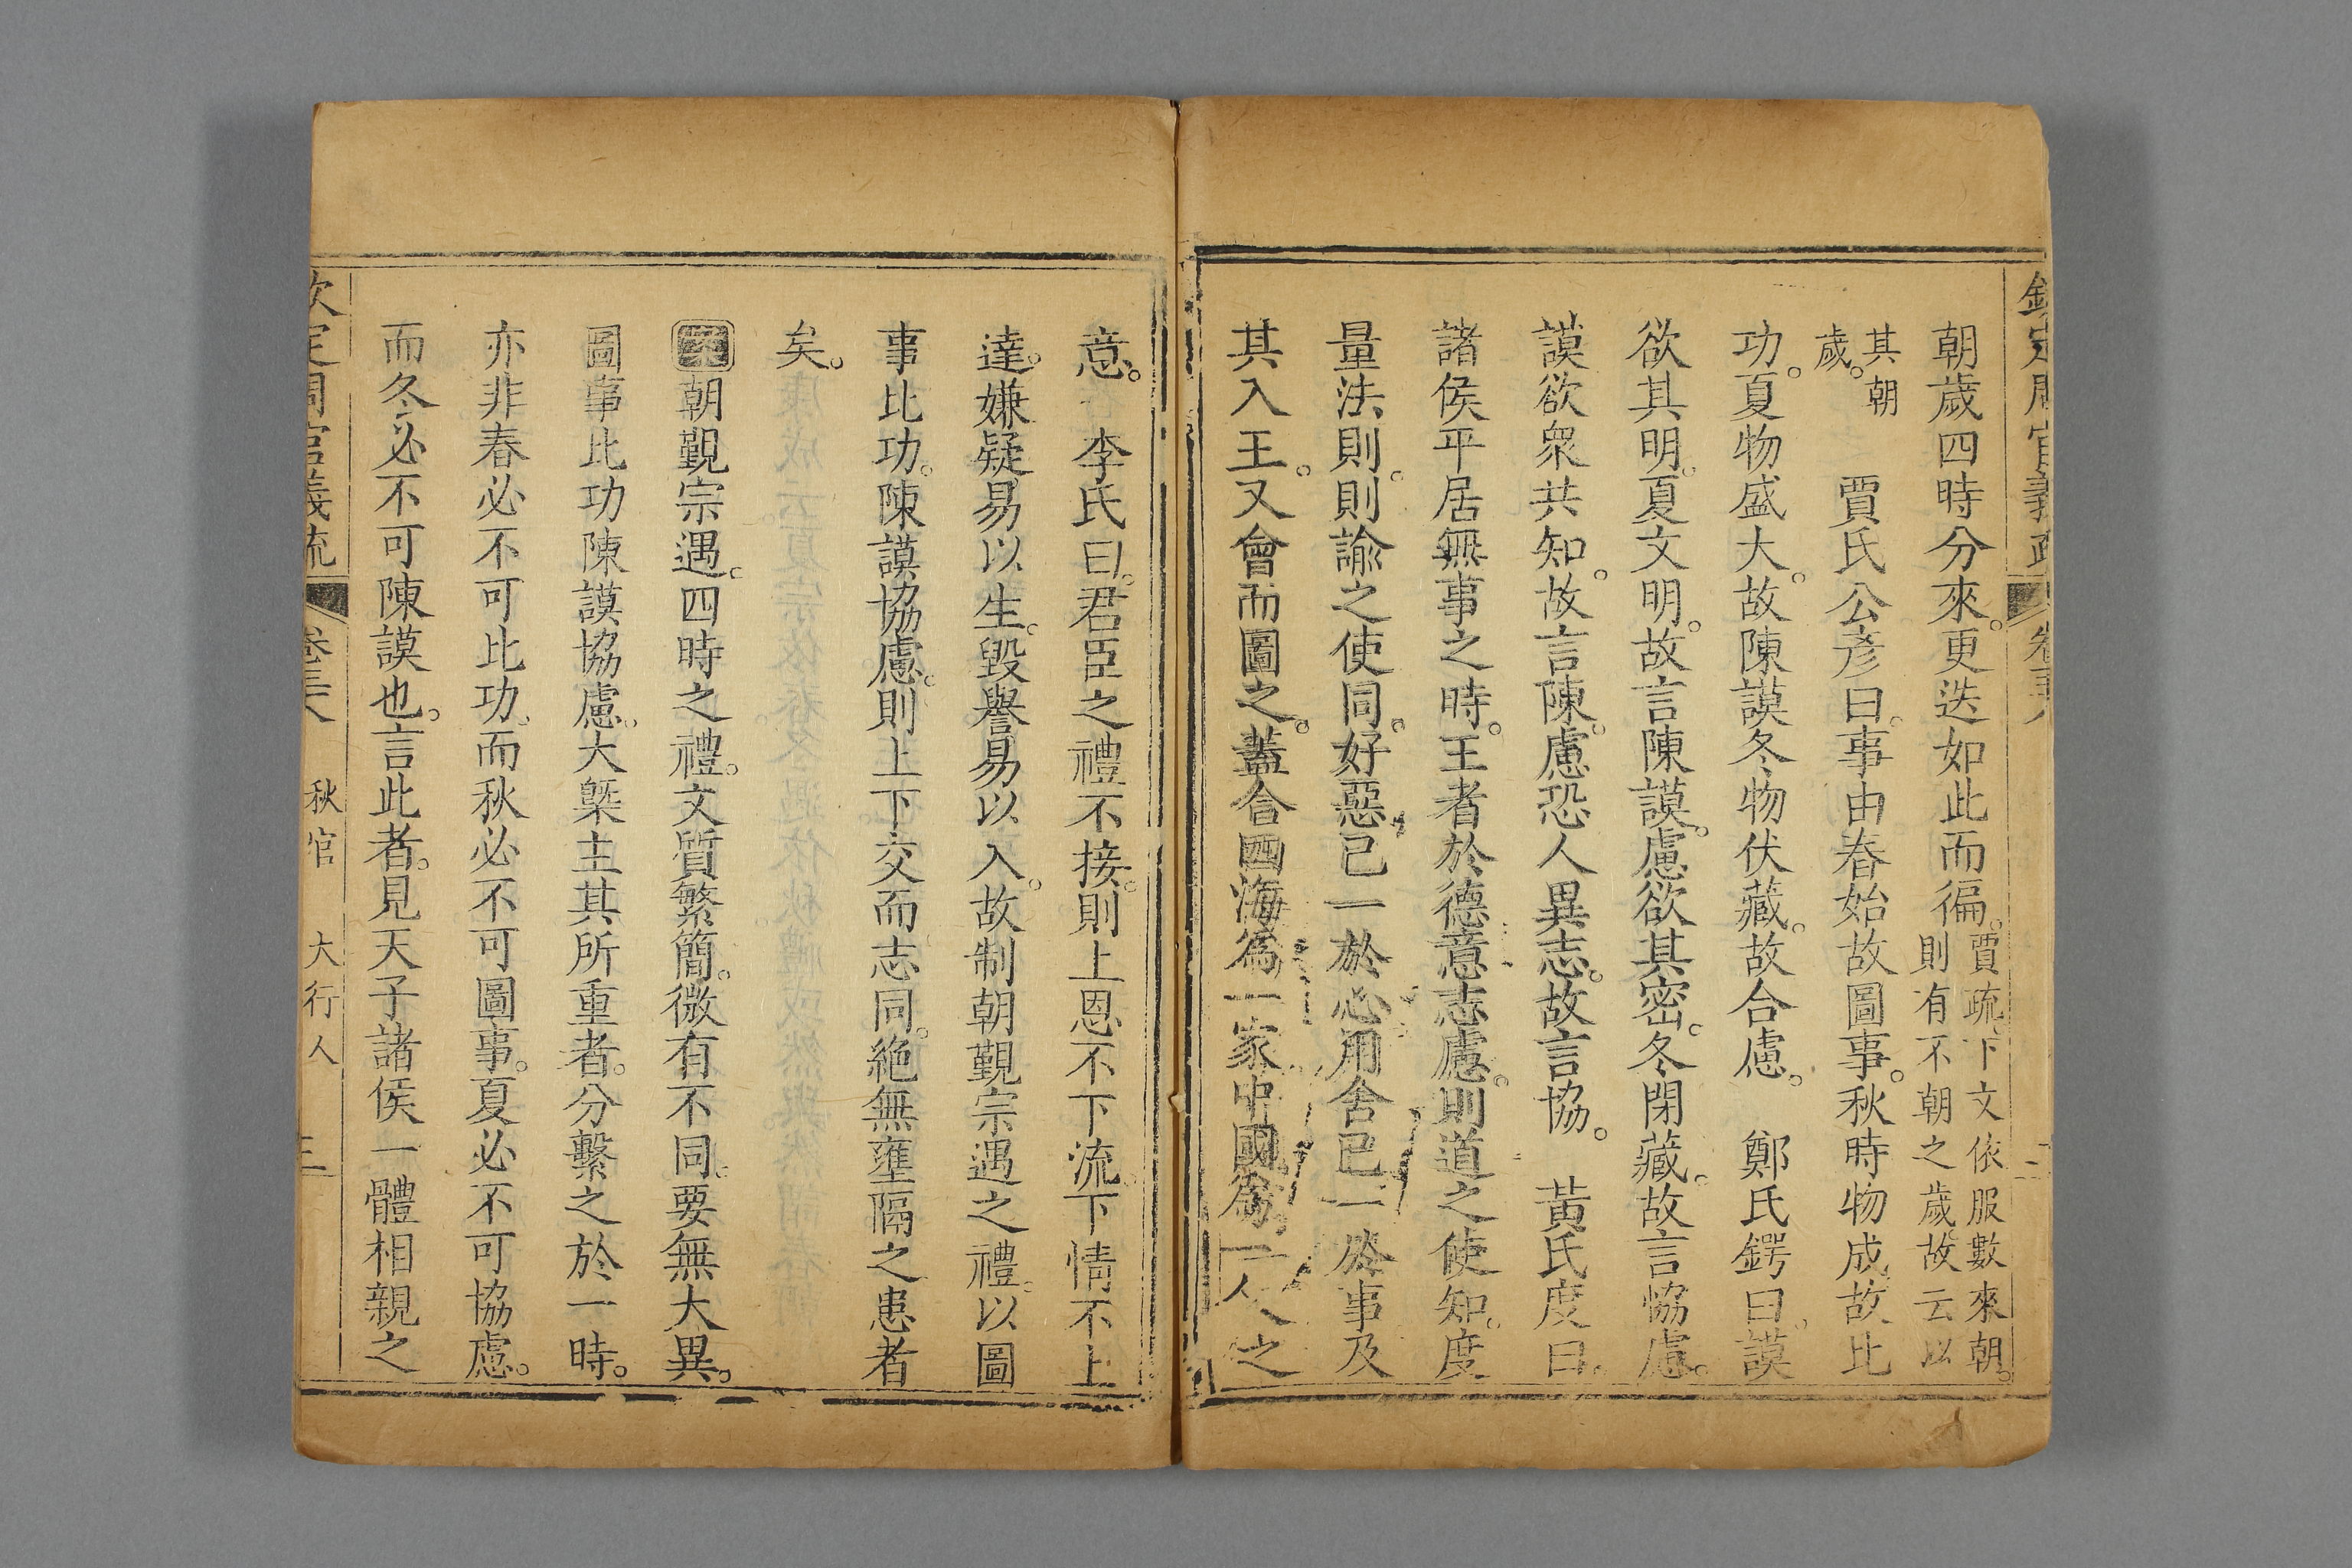 欽定周官義疏 卷三十八 二
朝歲四時分來。更迭如此而徧。賈疏下文依服數來朝。則有不朝之歲。故云以
其朝歲。 賈氏公彦曰。事由春始故圖事。秋時物成故比
功。夏物盛大。故陳謨冬物伏藏。故合慮。 鄭氏鍔曰。謨
欲其明。夏文明。故言陳謨。慮欲其密。冬閉藏。故言協慮。
謨欲衆共知。故言陳。慮恐人異志。故言協。 黃氏度曰。
諸侯平居無事之時。王者於德意志慮。則道之使知。度
量法則。則諭之使同。好惡已一於心用舍已一於事及
其入王。又會而圖之。蓋合四海爲一家中國爲一人之
意。 李氏曰。君臣之禮不接。則上恩不下流。下情不上
達。嫌疑易以生。毀譽易以入。故制朝覲宗遇之禮。以圖
事比功。陳謨協慮。則上下交而志同。絶無壅隔之患者
矣。
案朝覲宗遇。四時之禮。文質繁簡。微有不同。要無大異。
圖事比功陳謨協慮。大槩主其所重者。分繫之於一時。
亦非春必不可比功。而秋必不可圖事。夏必不可協慮。
而冬必不可陳謨也。言此者。見天子諸侯一體相親之
欽定周官義疏 卷三十八 秋官 大行人 三